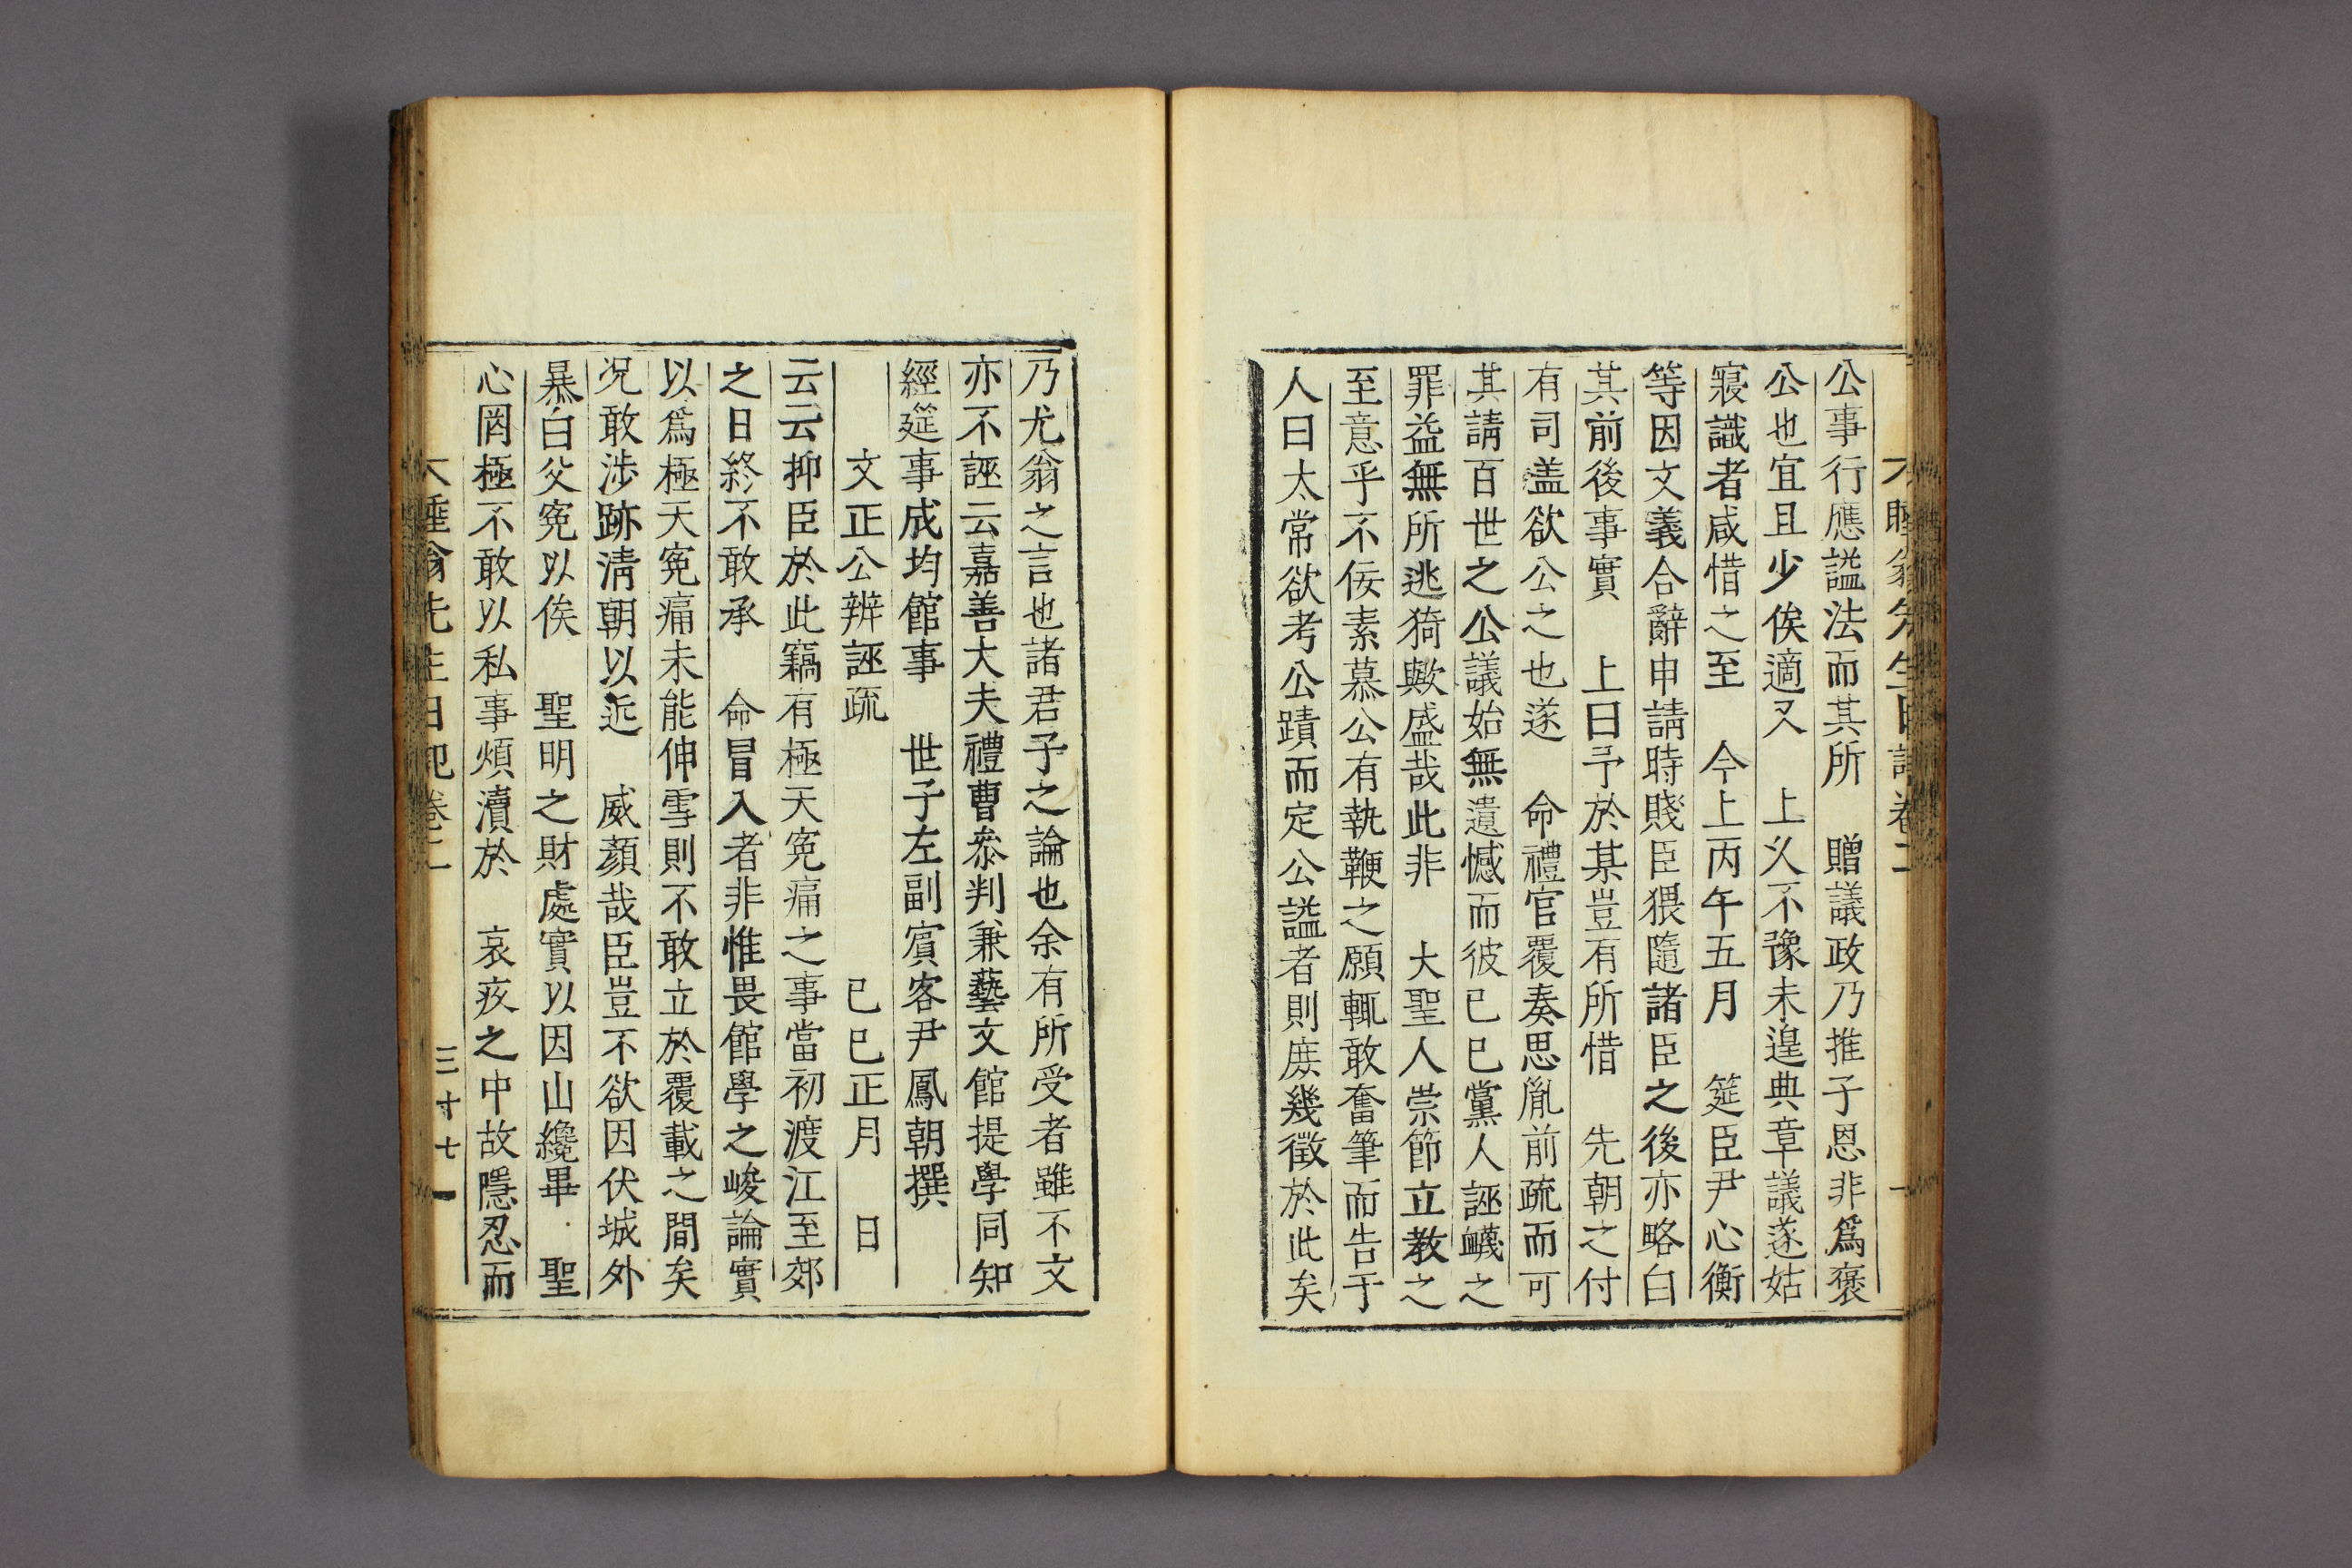 公事行應諡法而其所　贈議政乃推子恩非爲褒
公也宜且少俟適又　上乆不豫未遑典章議遂姑
寢識者咸惜之至　今上丙午五月　筵臣尹心衡
等因文義合辭申請時賤臣猥隨諸臣之後亦略白
其前後事實　上曰予於某豈有所惜　先朝之付
有司盖欲公之也遂　命禮官覆奏思胤前疏而可
其請百世之公議始無遺憾而彼己巳黨人誣衊之
罪益無所逃猗歟盛哉此非　大聖人崇節立教之
至意乎不佞素慕公有執鞭之願輒敢奮筆而告于
人曰太常欲考公蹟而定公諡者則庶幾徵於此矣
乃尤翁之言也諸君子之論也余有所受者雖不文
亦不誣云嘉善大夫禮曹叅判兼藝文館提學同知
經筵事成均館事　世子左副賓客尹鳳朝撰
文正公辨誣疏　己巳正月　日
云云抑臣於此竊有極天寃痛之事當初渡江至郊
之日終不敢承　命冒入者非惟畏館學之峻論實
以爲極天寃痛未能伸雪則不敢立於覆載之間矣
况敢涉跡清朝以近　威顏哉臣豈不欲因伏城外
暴白父寃以俟　聖明之財處實以因山纔畢　聖
心罔極不敢以私事煩瀆於　哀疚之中故隱忍而
睡翁先生日記卷二　三十七